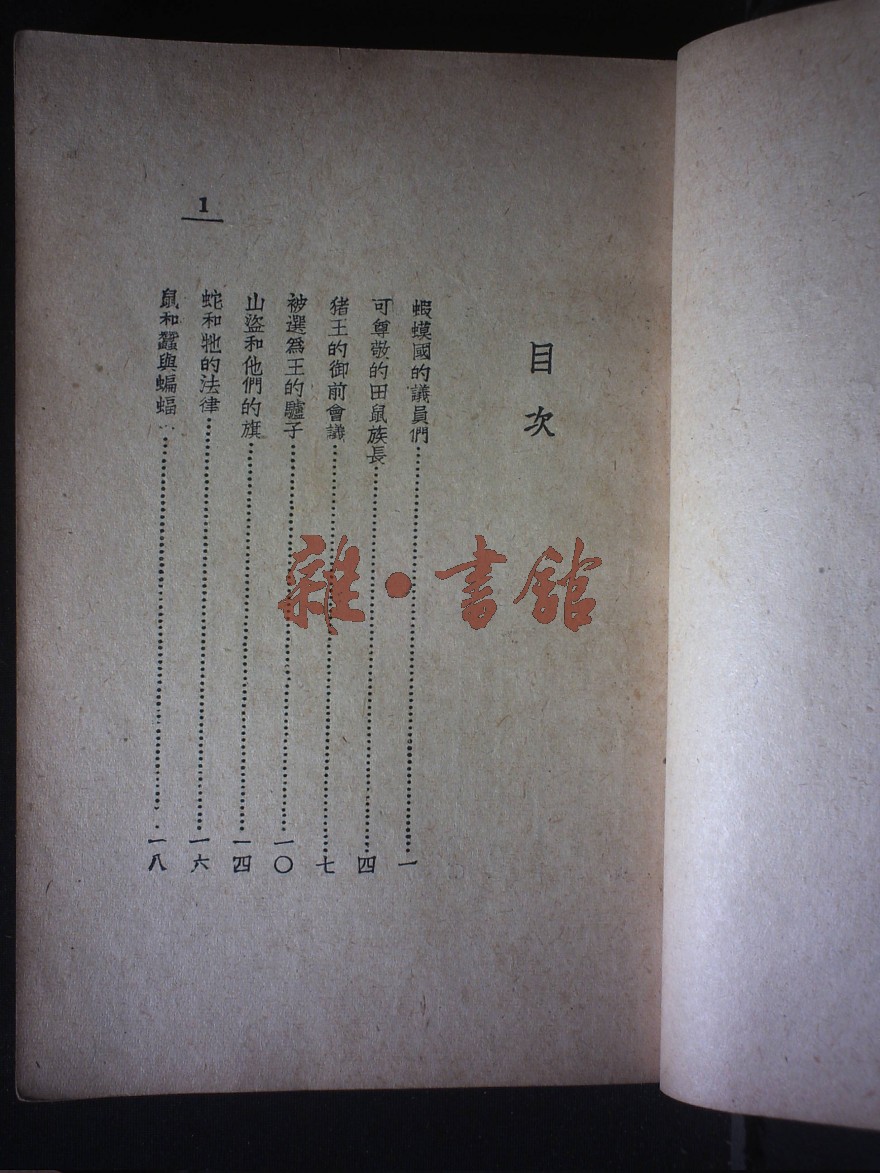 目次
蝦蟆國的議員們……一
可尊敬的田鼠族長……四
猪王的御前會議……七
被選爲王的驢子……一〇
山盜和他們的旗……一四
蛇和牠的法律……一六
鼠和蠶與蝙蝠……一八
1
雜·書館